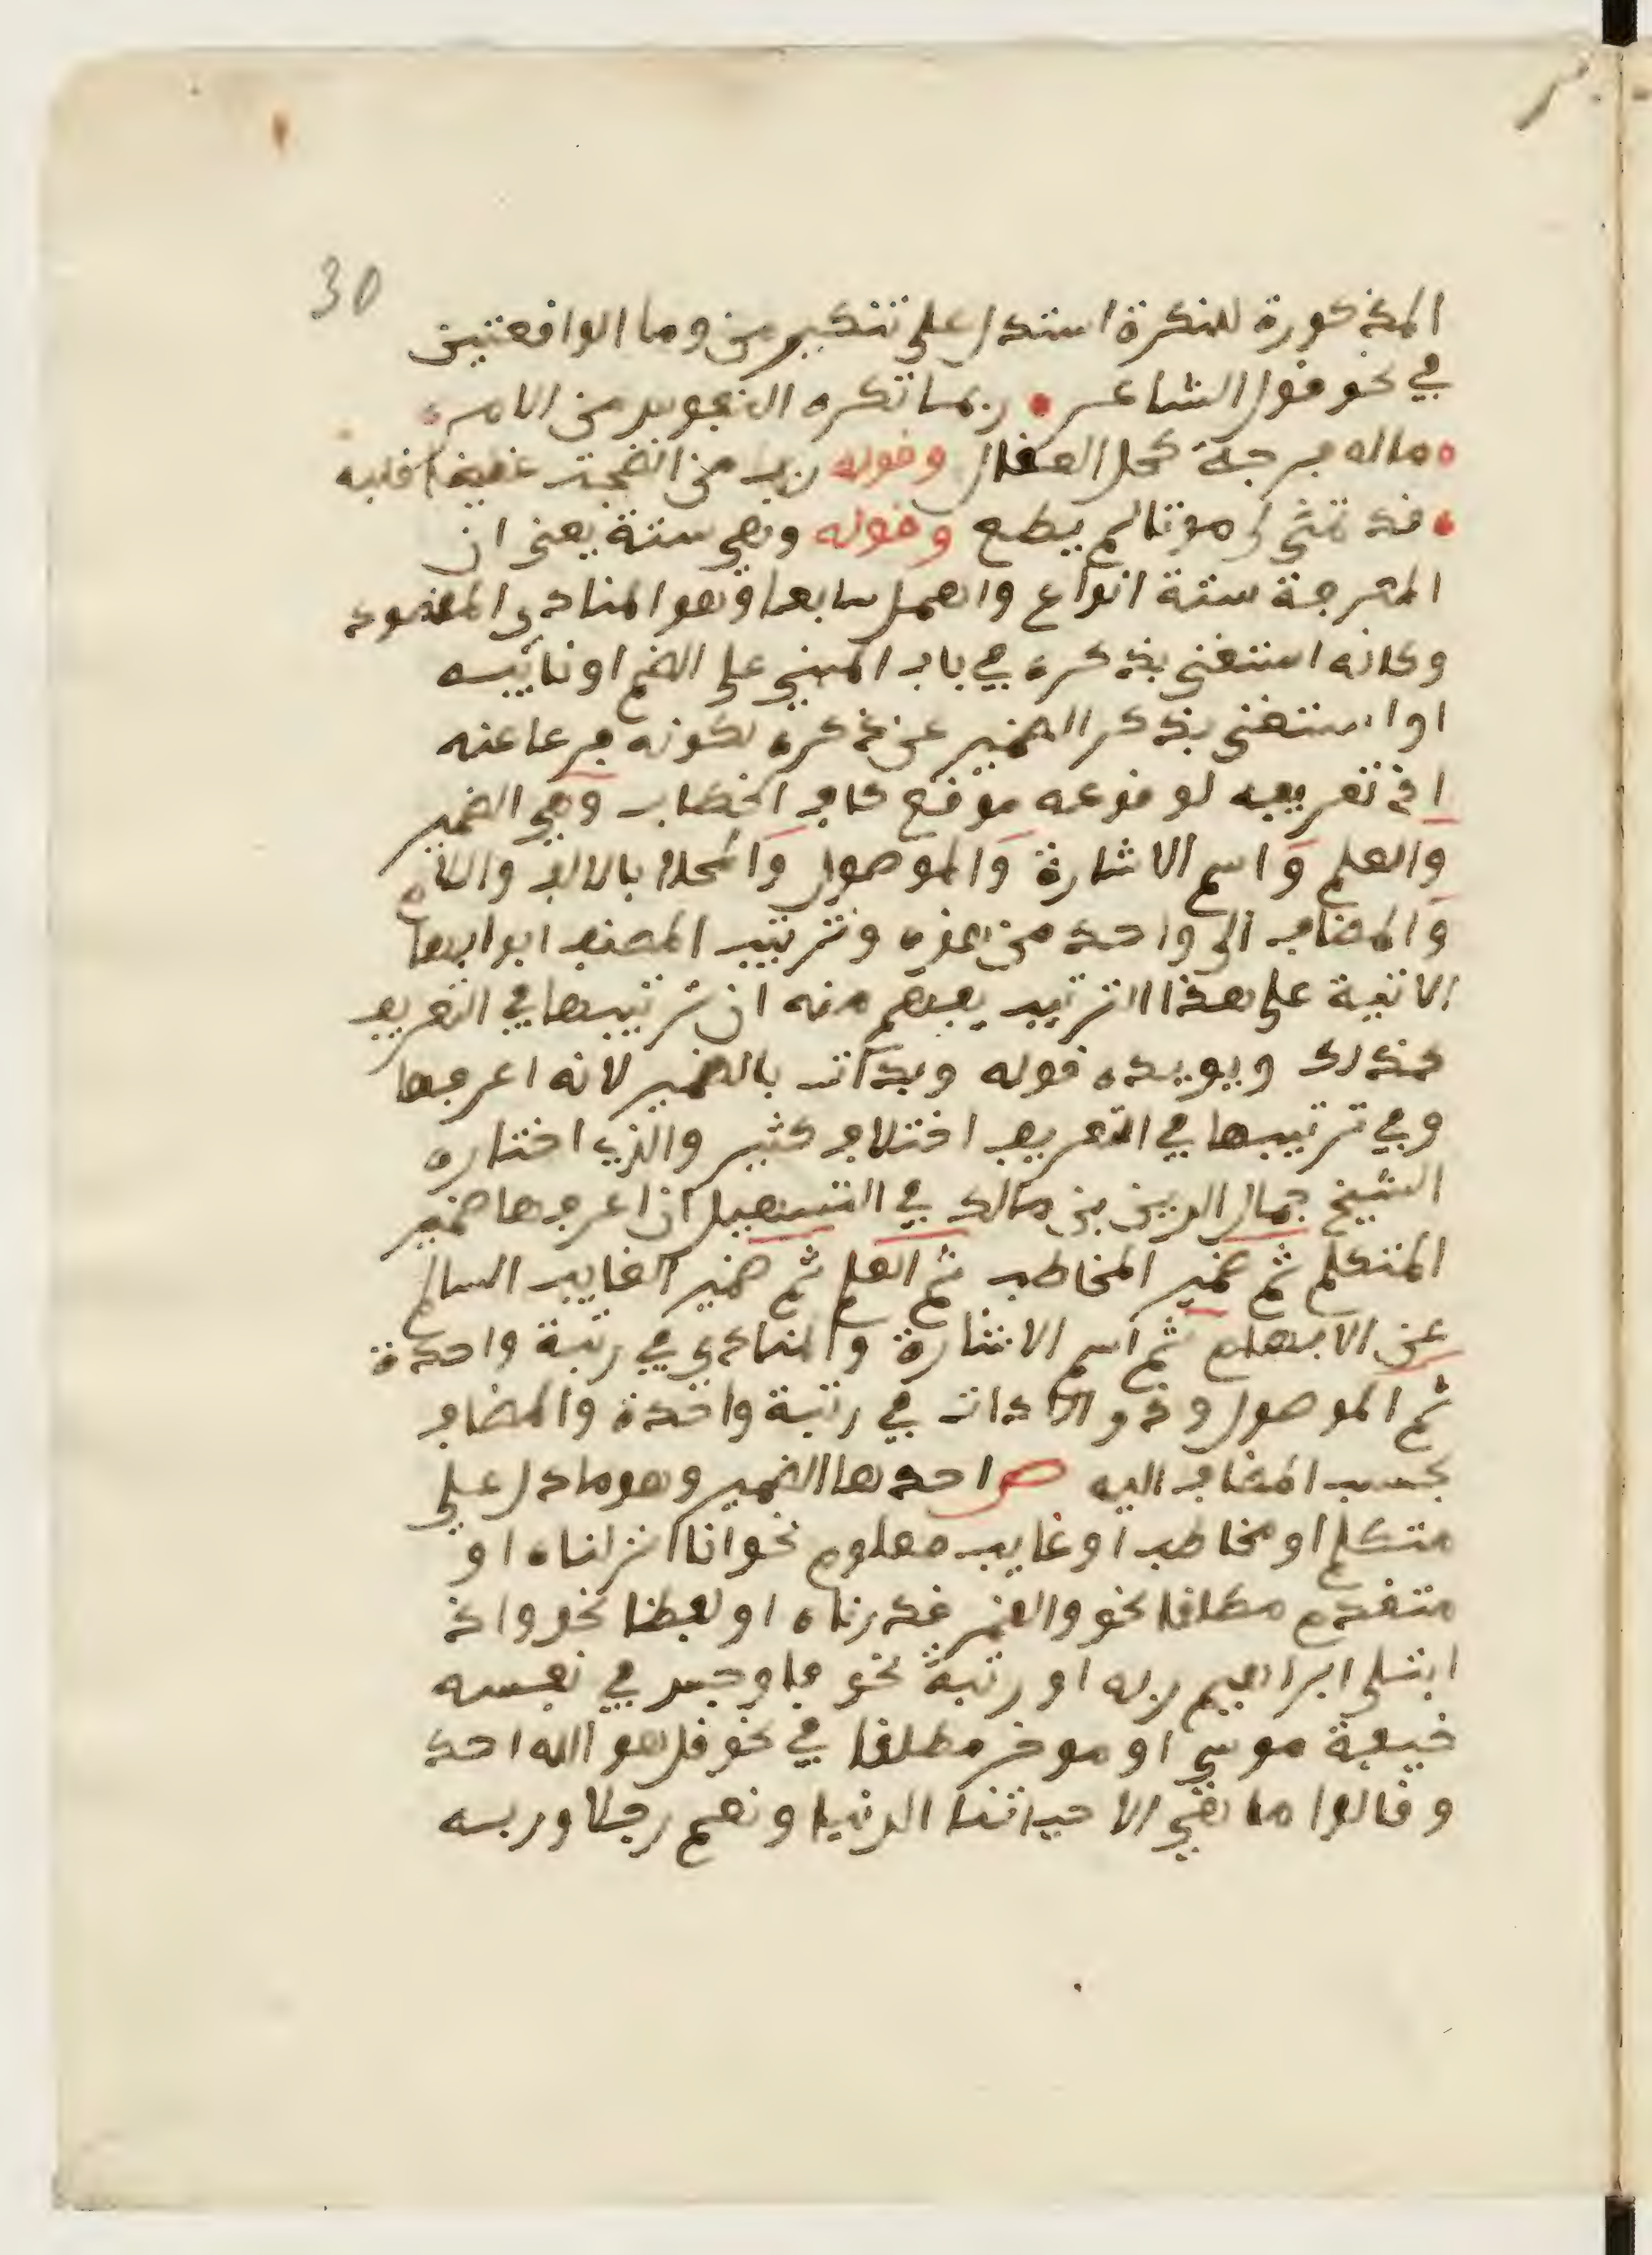 30
المذكورة للنكرة استدل على تنكير من وما الواقعتين
في نحو قول الشاعر • ربما تكره النفوس من الامر
ماله فرجة كحل العقال وقوله رب من انضجت غيظا قلبه
• قد تمنى لي موتا لم يطع وقوله وهي ستة يعني ان
المعرفة ستة انواع واهمل سابعا وهو المنادى المقصود
وكانه استغنى بذكره في باب المبني على الضم او نائبه
او استغنى بذكر الضمير عن ذكره لكونه فرعا عنه
اذ تعريفه لوقوعه موقع كاف الخطاب وهي الضمير
والعلم واسم الاشارة والموصول والمحلا بالالف واللام
والمضاف الى واحد من هذه وترتيب المصنف ابوابها
الاتية على هذا الترتيب يفهم منه ان ترتيبها في التعريف
كذلك ويويده قوله وبدات بالضمير لانه اعرفها
وفي ترتيبها في التعريف اختلاف كثير والذي اختاره
الشيخ جمال الدين بن مالك في التسهيل ان اعرفها ضمير
المتكلم ثم ضمير المخاطب ثم العلم ثم ضمير الغايب السالم
عن الابهام ثم اسم الاشارة والمنادى في رتبة واحدة
ثم الموصول وذو الادات في رتبة واحدة والمضاف
بحسب المضاف اليه ص احدها الضمير وهو ما دل على
متكلم او مخاطب او غايب معلوم نحو انا انزلناه او
متقدم مطلقا نحو والقمر قدرناه او لفظا نحو واذ
ابتلى ابراهيم ربه او رتبة نحو فاوجس في نفسه
خيفة موسى او موخر مطلقا في نحو قل هو الله احد
وقالوا ما هي الا حياتنا الدنيا ونعم رجلا وربه